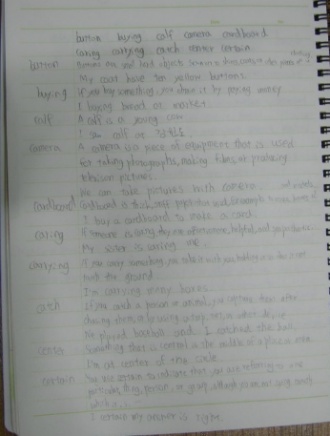 button buying calf camera cardboard
caring carrying catch center certain
button Buttons are small hard objects sewn on to shirts, coats, or other pieces of clothing
My coat have ten yellow buttons.
buying If you buy something, you obtain it by paying money
I buying bread at market.
calf A calf is a young cow
I saw calf at
camera A camera is a piece of equipment that is used
for taking photographs, making films, or producing
television pictures.
We can take pictures with camera.
cardboard Cardboard is thick, stiff paper that is used, for example, to make boxes and
I buy a cardboard to make a card.
caring If someone is caring, they are affectionate, helpful, and sympathetic.
My sister is caring me.
carrying If you carry something, you take it with you, holding it so that it does not
touch the ground
I'm carrying many boxes.
catch If you catch a person or animal, you capture them after
chasing them, or by using a trap, net, or other
We played baseball and I catched the ball.
center Something that is central is in the middle of a place or area
I'm at center of the circle.
certain You use certain to indicate that you are referring to one
particular thing, person, or group, although you are not saying exactly
which
I certain my answer is right.